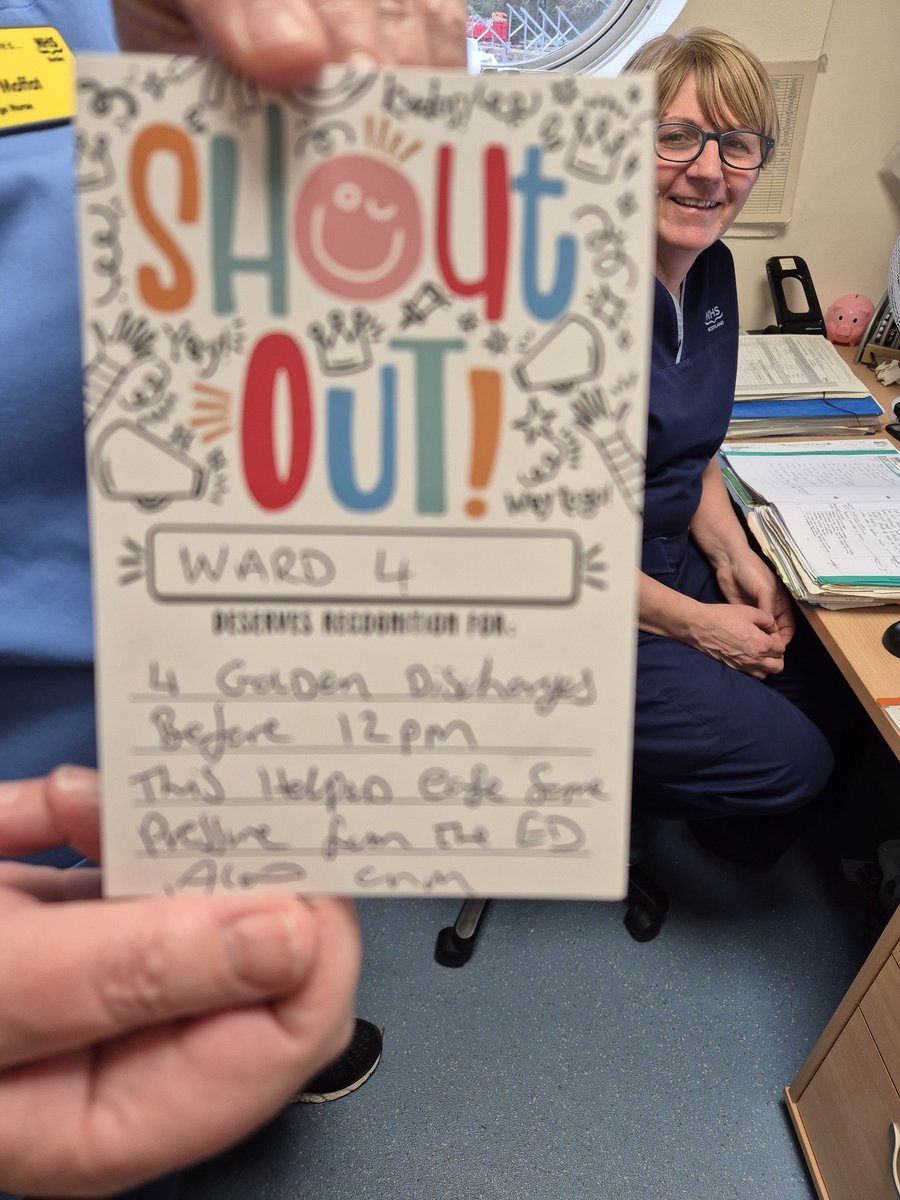 NHS
Moffat
SHOUT
OUT!
Yay!
Way to go!
WARD 4
DESERVES RECOGNITION FOR:
4 Golden Discharges
Before 12pm
This Helped ease some
Pressure from the ED
NHS
SCOTLAND